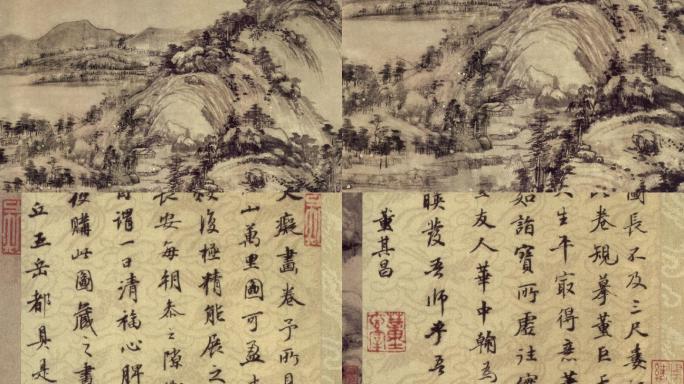 大癡畫卷予所見
山萬里圖可盈
復極精能展之
長安每朝參之隙
謂一日清福心脾
購此圖藏之
丘五岳都具是
圖長不及三尺婁
此卷規摹董巨
生平冣得意
如詣寶所虛往實
友人華中翰為
映發吾師乎吾
董其昌